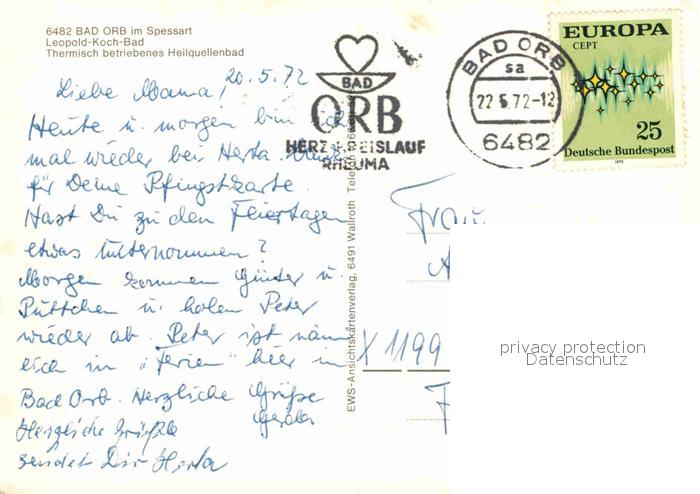 6482 BAD ORB im Spessart
Leopold-Koch-Bad
Thermisch betriebenes Heilquellenbad
20.5.72
Liebe Mama!
Heute u. morgen bin ich
mal wieder bei Herta. Dank
für Deine Pfingstkarte
Hast Du zu den Feiertagen
etwas unternommen?
Morgen kommen Günter u.
Püttchen u. holen Peter
wieder ab. Peter ist näm
lich in "Ferien" hier in
Bad Orb. Herzliche Grüße
Gerda
Herzliche Grüße
sendet Dir Herta
BAD
ORB
HERZ KREISLAUF
RHEUMA
BAD ORB
sa
22.5.72-12
6482
EUROPA
CEPT
25
Deutsche Bundespost
1972
EWS-Ansichtskartenverlag, 6491 Wallroth
Frau
X 1199
privacy protection
Datenschutz